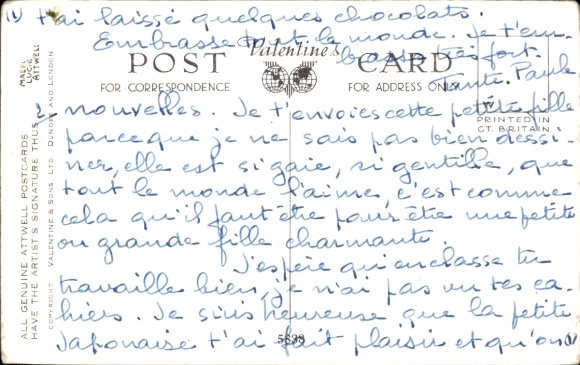 (1) t'ai laissé quelques chocolats.
Embrasse tout le monde. Je t'em-
brasse très fort.
Tante Paule
Valentine's
POST CARD
FOR CORRESPONDENCE
FOR ADDRESS ONLY
PRINTED IN
GT. BRITAIN
MABEL
LUCIE
ATTWELL
nouvelles. Je t'envoie cette petite fille
parce que je ne sais pas bien dessi-
ner, elle est si gaie, si gentille, que
tout le monde l'aime, c'est comme
cela qu'il faut être pour être une petite
ou grande fille charmante.
J'espère qu'en classe tu
travaille bien, je n'ai pas vu tes ca-
hiers. Je suis heureuse que la petite
Japonaise t'ai fait plaisir et qu'on (1)
ALL GENUINE ATTWELL POSTCARDS
HAVE THE ARTIST'S SIGNATURE THUS
COPYRIGHT. VALENTINE & SONS. LTD. DUNDEE AND LONDON.